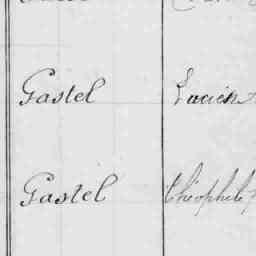 Gastel Lucien
Gastel Théophile